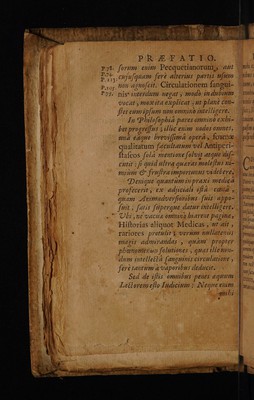 PRÆFATIO.
sorum enim Pecquetianorum, aut
cujusquam ferè alterius partis usum
non agnoscit. Circulationem sangui-
nis interdum negat, modò in dubium
vocat, mox ita explicat, ut planè con-
stet eum ipsum non omninò intelligere.
In Philosophiâ pares omninò exhi-
bet progressus; illic enim nodos omnes,
unâ eâque brevissimâ operâ,
qualitatum facultatum vel Antiperi-
staticos solâ mentione solvit atque dis-
cutit: si quid ultra quæras molestus ni-
mium & frustra importunus videbere.
Denique quantum in praxi medicâ
profecerit, ex adjiciali istâ
quam Animadversionibus suis appo-
suit, satis superque datur intelligere.
Ubi, nè vacua omninò maneret pagina,
Historias aliquot Medicas, ut ait,
rariores protulit; verum nullatenus
magis admirandas, quàm propter
phænomenωn solutiones, quas ille non-
dum intellectâ sanguinis circulatione,
ferè tantùm à vaporibus deducit.
Sed de istis omnibus penes æquum
Lectorem esto Judicium: Neque enim
mihi